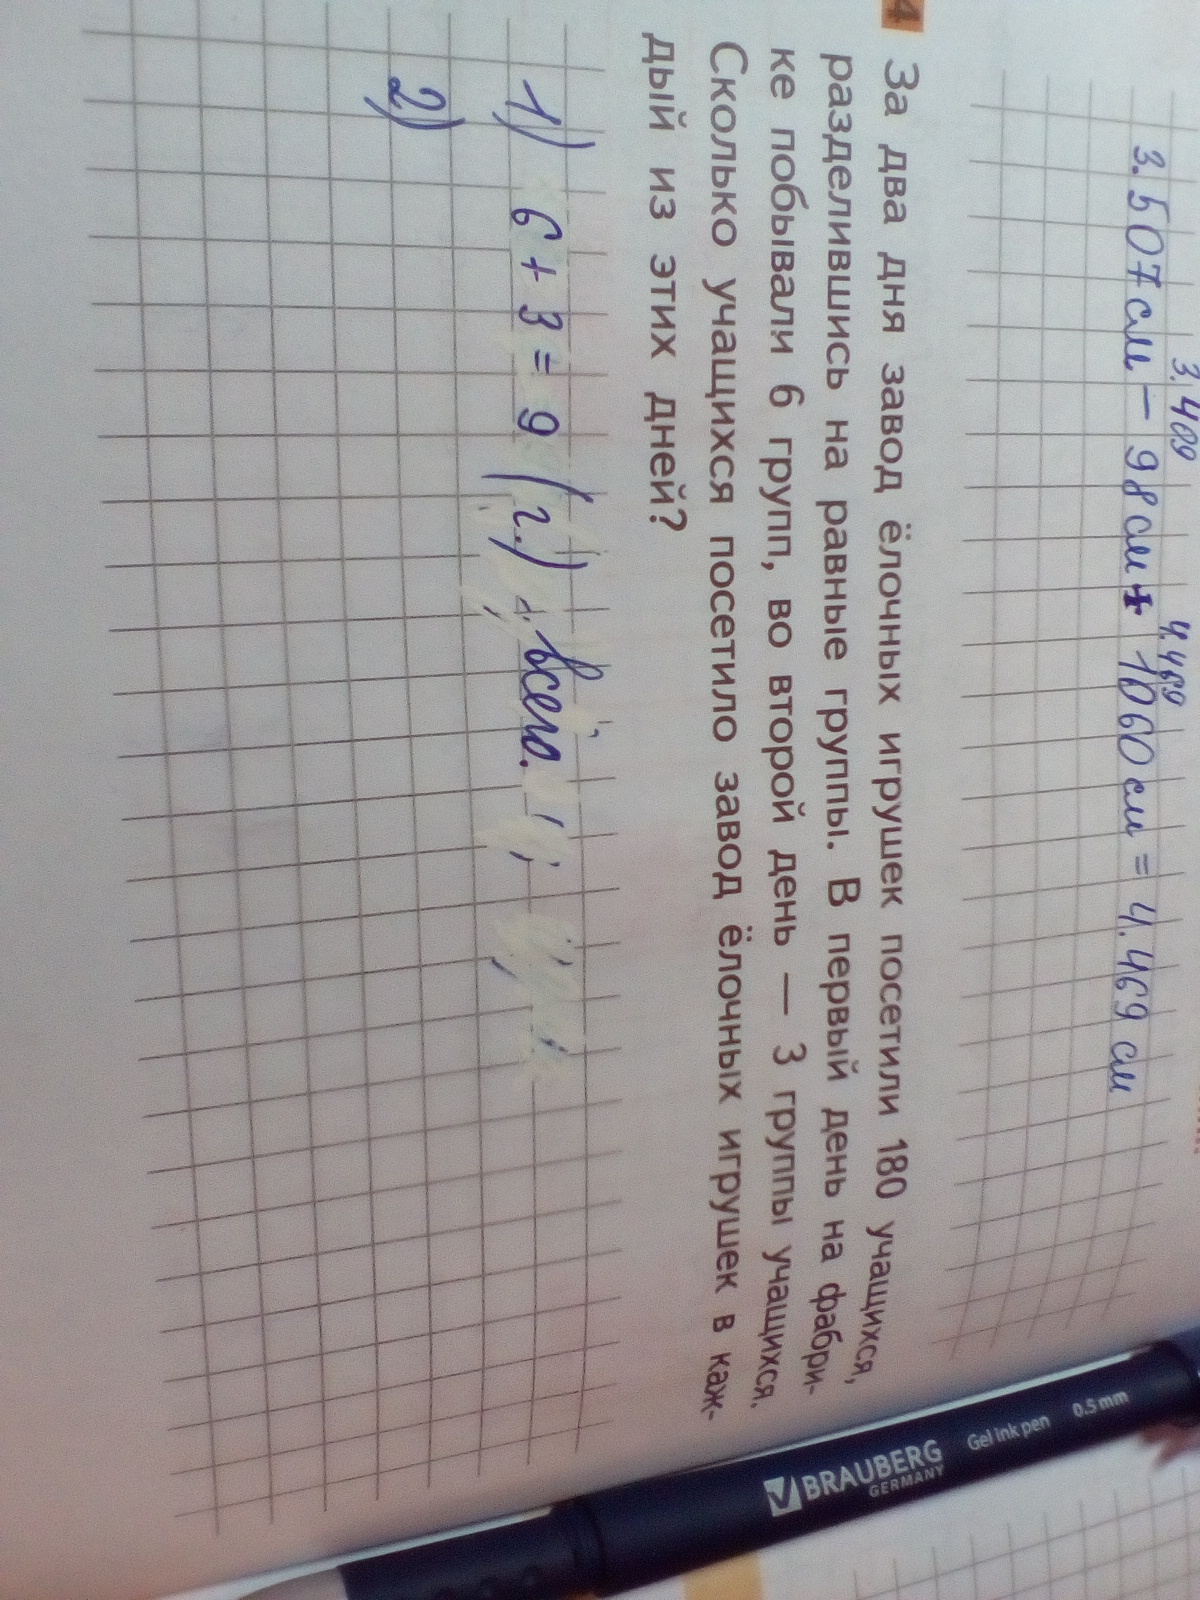 3.409 4.469
3.507см - 98см + 1060см = 4.469 см
4
За два дня завод ёлочных игрушек посетили 180 учащихся,
разделившись на равные группы. В первый день на фабри-
ке побывали 6 групп, во второй день — 3 группы учащихся.
Сколько учащихся посетило завод ёлочных игрушек в каж-
дый из этих дней?
1) 6 + 3 = 9 (г.) - всего.
2)
BRAUBERG
GERMANY
Gel ink pen 0.5 mm